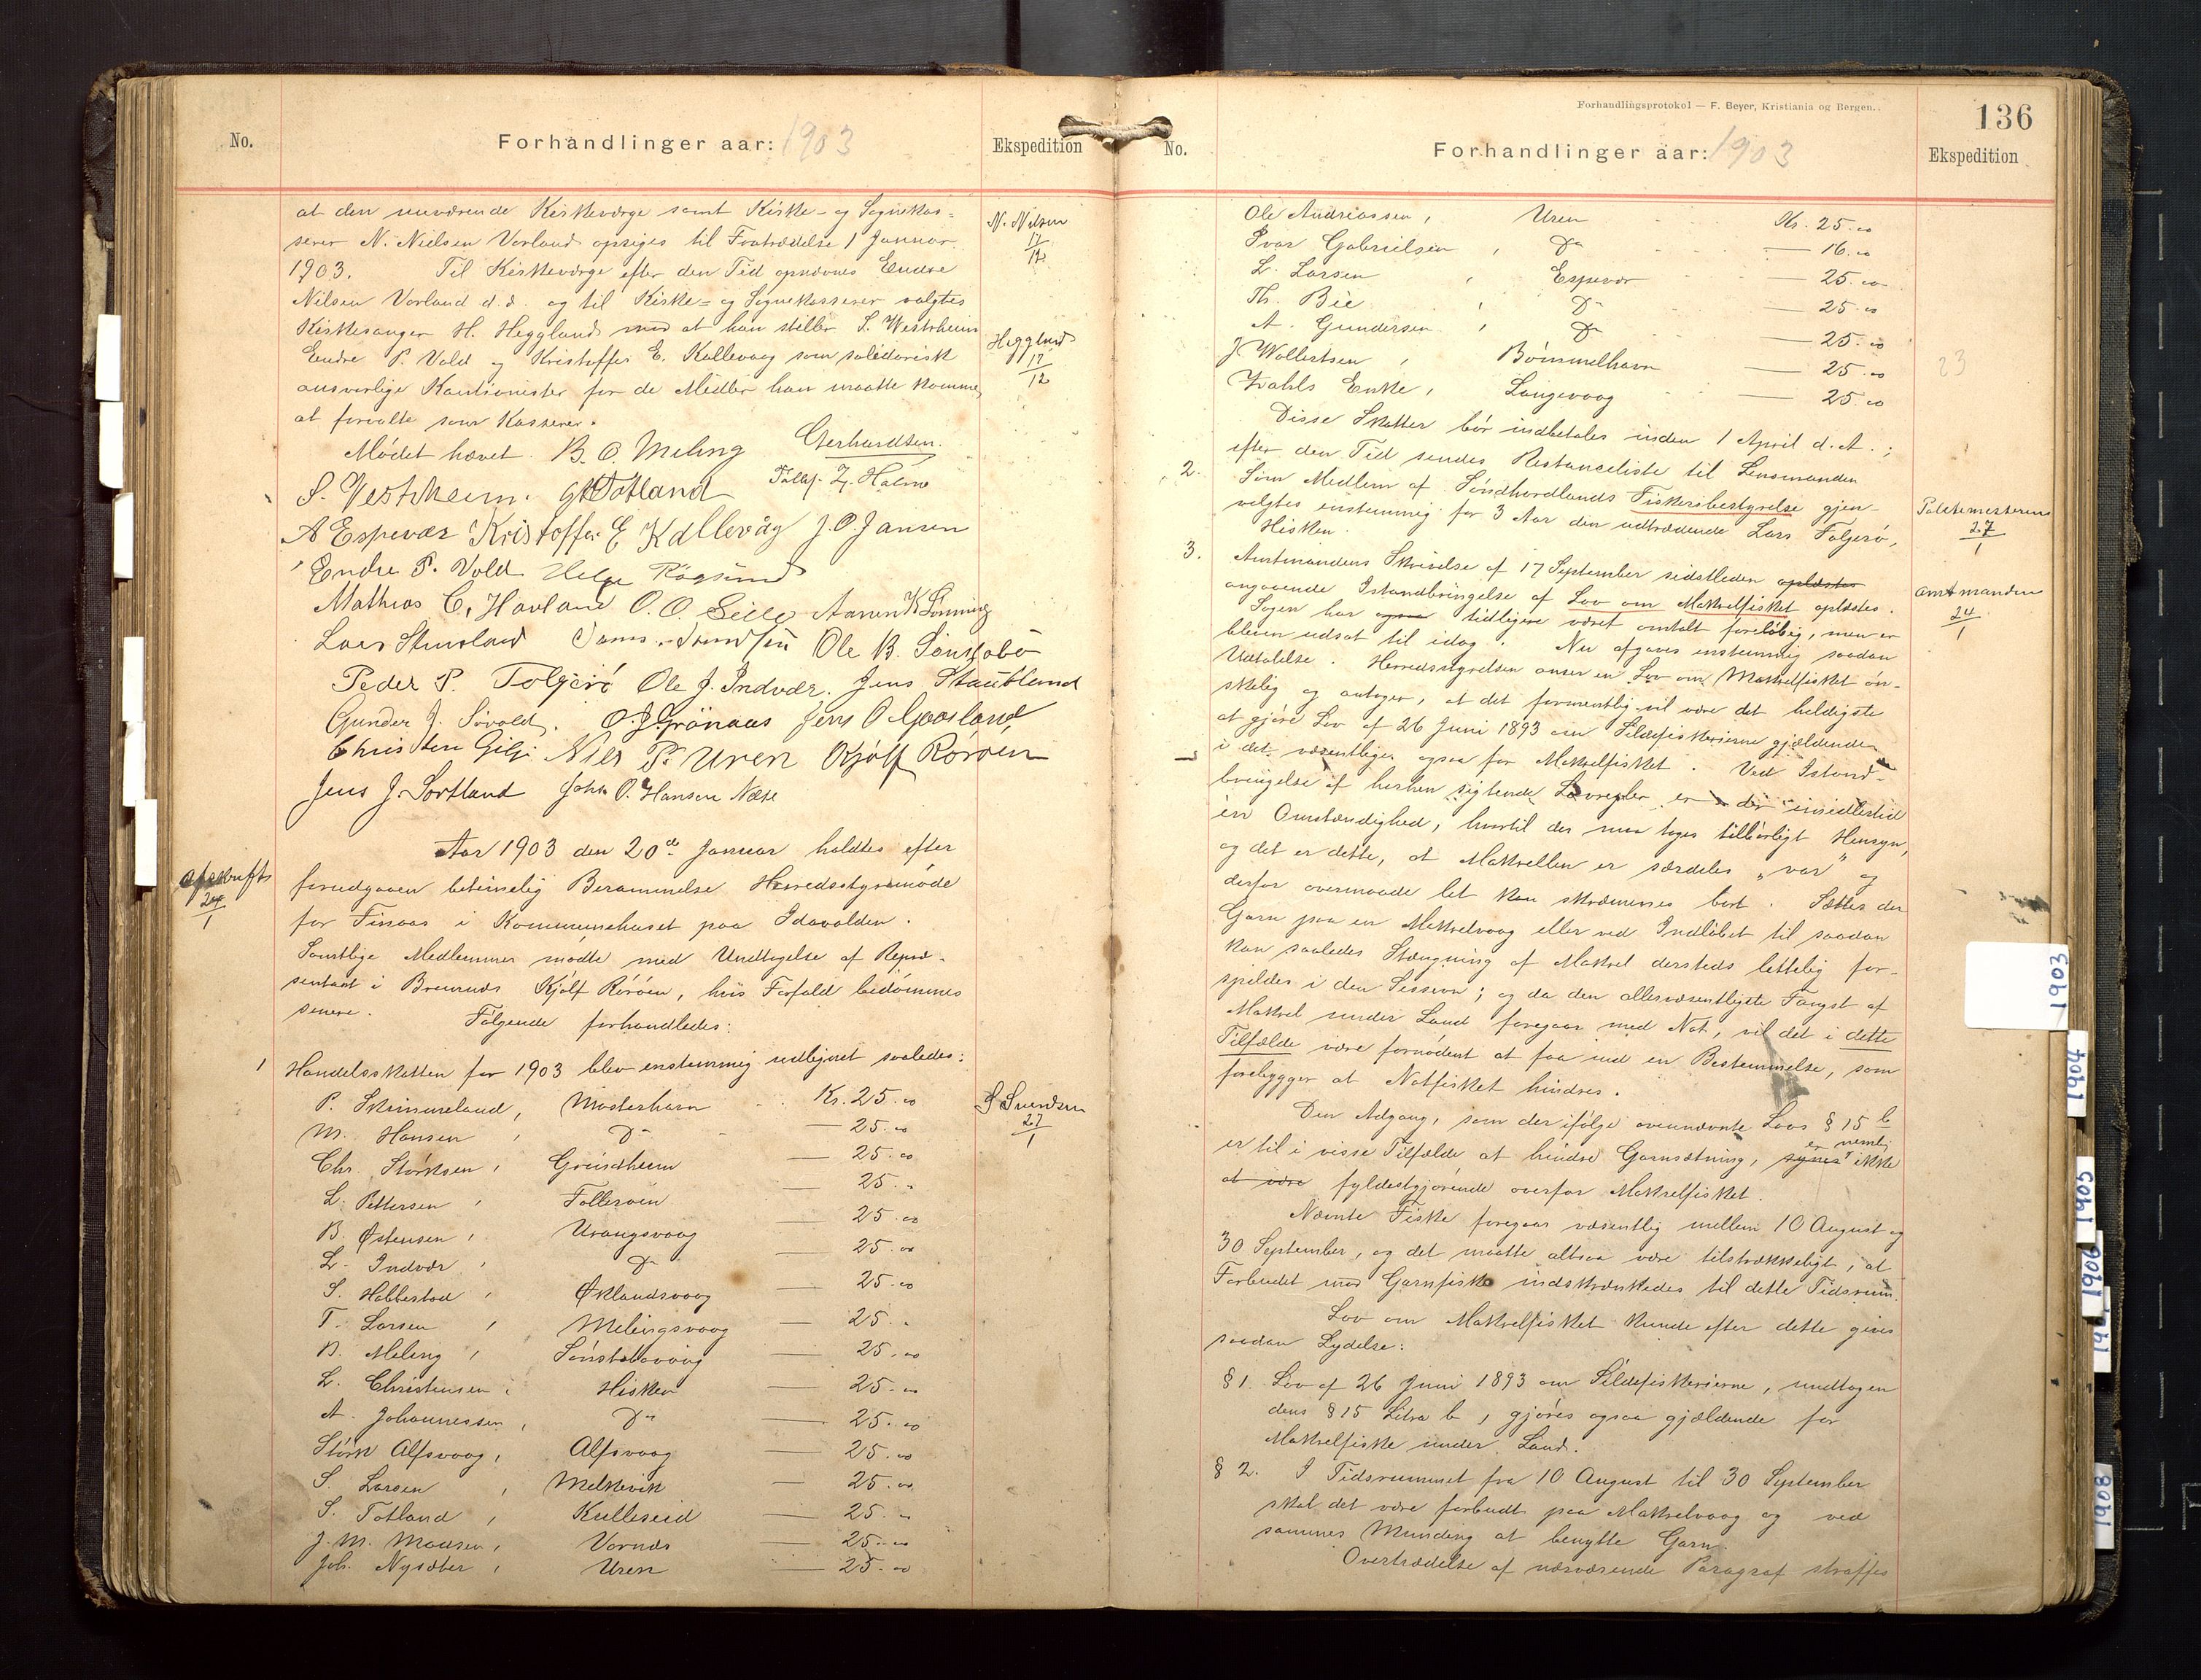 No.
Forhandlinger aar: 1903
Ekspedition
at den nuværende Kirkeværge samt Kirke- og Sognekas=
serer N. Nielsen Vorland opsiges til Fratrædelse 1 Januar
1903. Til Kirkeværge efter den Tid opnævnes Endre
Nilsen Vorland d.d. og til Kirke= og Sognekasserer valgtes
Kirkesanger H. Heggland mod at han stiller S. Westrheim
Endre P. Vold og Kristoffer E. Kallevaag som solidarisk
ansvarlige Kautionister for de Midler han maatte komme
at forvalte som Kasserer.
N. Nilsen
17/12
Heggland
17/12
Mødet hævet. B. O. Meling Gerhardsen.
S. Vestrheim. Totland Z. Holme
A Espevær Kristoffer E Kallevåg J. O. Jansen
Endre P. Vold Helge Røgsund
Mathias C. Havland O. O.
Lars Stursland Ole B. Sønstabø
Peder P. Folgerö Ole J. Indvær. Jens Staubland
Gunder J. Søvold. O. J. Grönaas Jens O Gaasland
Christen Gilje Nils P. Uren Kjölf Röröen
Jens J. Sortland John O. Hansen Næse
Aar 1903 den 20de Januar holdtes efter
forudgaaen betimelig Berammelse Herredsstyremøde
for Finaas i Kommunehuset paa Idavolden.
Samtlige Medlemmer mødte med Undtagelse af Repræ-
sentant i Bremnes Kjølf Rörøen, hvis Forfald bedømmes
senere. Følgende forhandledes:
Afskrift
24/1
1 Handelsskatten for 1903 blev enstemmig udlignet saaledes:
P. Skimmeland, Mosterhavn Kr. 25.00
M. Hansen , Do — 25.00
Chr. Størksen , Grindheim — 25.00
L. Pettersen , Folleröen — 25.-
B. Østensen , Urangsvaag — 25.00
L. Indvær , Do — 25.00
S. Habbestad , Øklandsvaag — 25.00
T. Larsen , Melingsvaag — 25.-
B. Meling , Sønstabøvaag — 25.00
L. Christensen , Hisken — 25.00
A. Johannessen , Do — 25.00
Størk Alfsvaag , Alfsvaag — 25.00
S. Larsen , Melkevik — 25.00
S. Totland , Kulleseid — 25.-
J. M. Madsen , Vornæs — 25.00
Joh. Nysæter , Uren — 25.00
S Svendsen
27/1
Forhandlingsprotokol — F. Beyer, Kristiania og Bergen.
136
No.
Forhandlinger aar: 1903
Ekspedition
Ole Andreassen , Uren Kr. 25.00
Ivar Gabrielsen , Do — 16.00
L. Larsen , Espevær — 25.00
Th. Bie , Do — 25.00
A. Gundersen , Do — 25.00
J Wollertsen , Bömmelhavn — 25.00
Wahls Enke , Langevaag — 25.00
23
Disse Skatter bør indbetales inden 1 April d. A.;
efter den Tid sendes Restanceliste til Lensmanden
2. Som Medlem af Søndhordlands Fiskeribestyrelse gjen-
valgtes enstemmig for 3 Aar den udtrædende Lars Folgerö,
Hisken.
Politimesteren
27/1
3. Amtmandens Skrivelse af 17 September sidstleden oplæstes
angaaende Istandbringelse af Lov om Makrelfisket oplæstes.
Sagen har ogsaa tidligere været omtalt foreløbig, men er
bleven udsat til idag. Nu afgaves enstemmig saadan
Udtalelse. Herredsstyrelsen anser en Lov om Makrelfisket øn-
skelig og antager, at det formentlig vil være det heldigste
at gjøre Lov af 26 Juni 1893 om Sildefiskerierne gjældende
i det væsentlige ogsaa for Makrelfisket. Ved Istand-
bringelse af herhen sigtende Lovregler er der imidlertid
en Omstændighed, hvortil der maa tages tilbørligt Hensyn,
og det er dette, at Makrellen er særdeles „var" og
derfor overmaade let kan skræmmes bort. Sættes der
Garn paa en Makrelvaag eller ved Indløbet til saadan
kan saaledes Stængning af Makrel dersteds lettelig for-
spildes i den Sesson; og da den allervæsentligste Fangst af
Makrel under Land foregaar med Not, vil det i dette
Tilfælde være fornødent at faa ind en Bestemmelse, som
forebygger at Notfisket hindres.
Amtmanden
24/1
Den Adgang, som der ifølge ovennævnte Lovs § 15 b
er til i visse Tilfælde at hindre Garnsætning, synes er nemlig ikke
at være fyldestgjørende overfor Makrelfisket.
Nævnte Fiske foregaar væsentlig mellem 10 August og
30 September, og det maatte altsaa være tilstrækkeligt, at
Forbudet mod Garnfiske indskrænkedes til dette Tidsrum.
Lov om Makrelfisket kunde efter dette gives
saadan Lydelse:
§ 1. Lov af 26 Juni 1893 om Sildefiskerierne, undtagen
dens § 15 Litra b, gjøres ogsaa gjældende for
Makrelfiske under Land.
§ 2. I Tidsrummet fra 10 August til 30 September
skal det være forbudt paa Makrelvaag og ved
sammes Munding at benytte Garn.
Overtrædelse af nærværende Paragraf straffes
1903
1904
1905
1906
1908